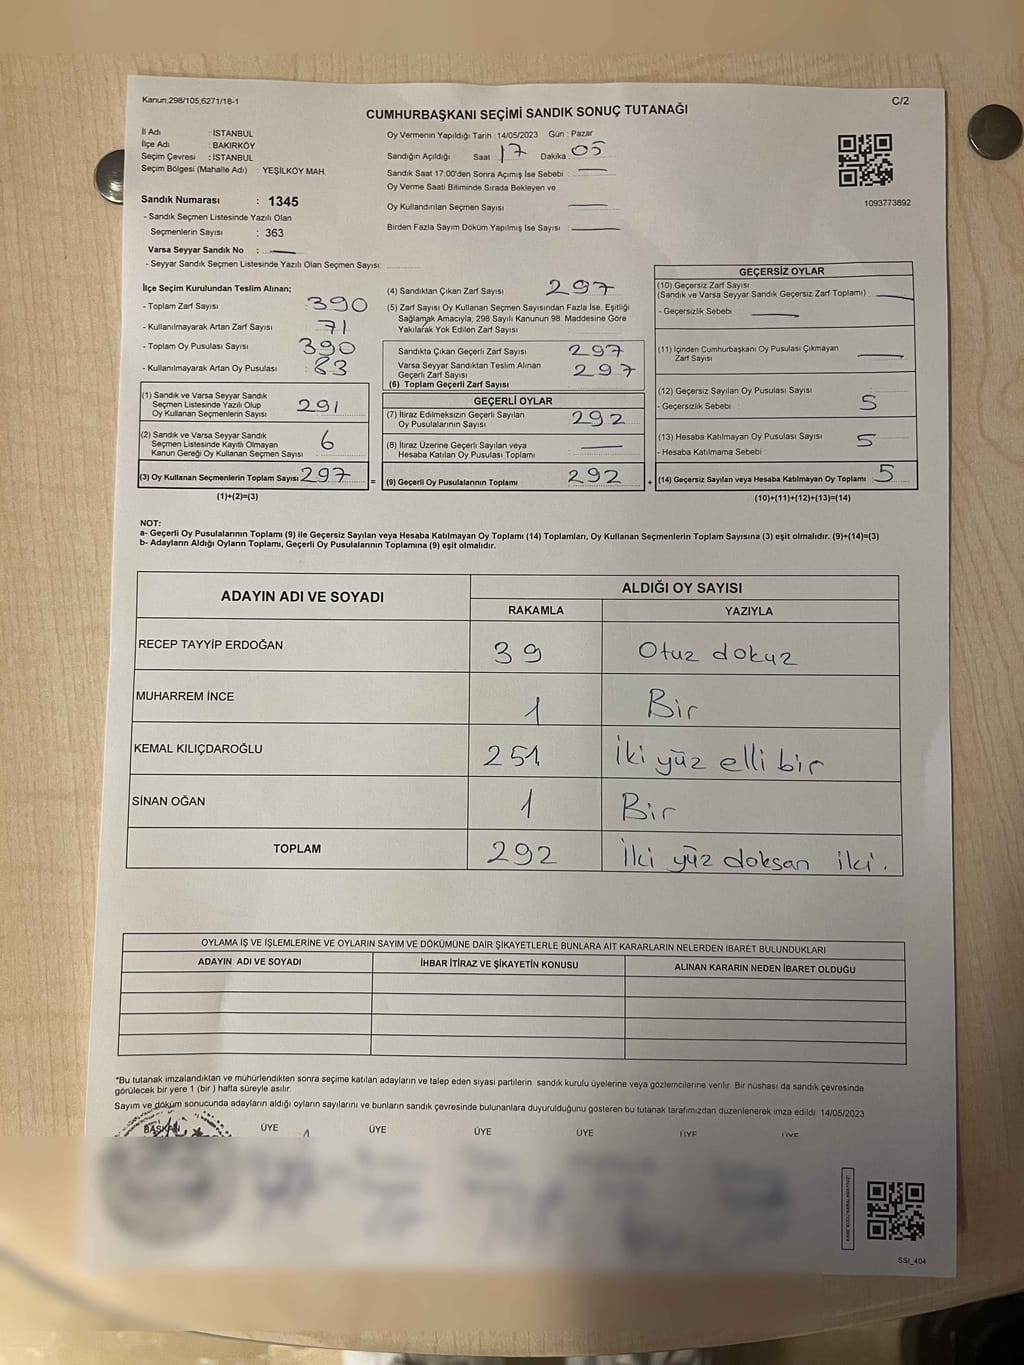 Kanun;298/105;6271/18-1
C/2
CUMHURBAŞKANI SEÇİMİ SANDIK SONUÇ TUTANAĞI
İl Adı : İSTANBUL
İlçe Adı : BAKIRKÖY
Seçim Çevresi : İSTANBUL
Seçim Bölgesi (Mahalle Adı) : YEŞİLKÖY MAH.
Sandık Numarası : 1345
- Sandık Seçmen Listesinde Yazılı Olan
Seçmenlerin Sayısı : 363
Varsa Seyyar Sandık No : —
- Seyyar Sandık Seçmen Listesinde Yazılı Olan Seçmen Sayısı:
Oy Vermenin Yapıldığı Tarih :14/05/2023 Gün : Pazar
Sandığın Açıldığı Saat : 17 Dakika : 05
Sandık Saat 17:00'den Sonra Açımış İse Sebebi : —
Oy Verme Saati Bitiminde Sırada Bekleyen ve
Oy Kullandırılan Seçmen Sayısı —
Birden Fazla Sayım Döküm Yapılmış İse Sayısı : —
1093773892
İlçe Seçim Kurulundan Teslim Alınan;
- Toplam Zarf Sayısı 390
- Kullanılmayarak Artan Zarf Sayısı 71
- Toplam Oy Pusulası Sayısı 390
- Kullanılmayarak Artan Oy Pusulası : 83
(1) Sandık ve Varsa Seyyar Sandık
Seçmen Listesinde Yazılı Olup
Oy Kullanan Seçmenlerin Sayısı 291
(2) Sandık ve Varsa Seyyar Sandık
Seçmen Listesinde Kayıtlı Olmayan
Kanun Gereği Oy Kullanan Seçmen Sayısı 6
(3) Oy Kullanan Seçmenlerin Toplam Sayısı 297
(1)+(2)=(3)
(4) Sandıktan Çıkan Zarf Sayısı 297
(5) Zarf Sayısı Oy Kullanan Seçmen Sayısından Fazla İse, Eşitliği
Sağlamak Amacıyla; 298 Sayılı Kanunun 98. Maddesine Göre
Yakılarak Yok Edilen Zarf Sayısı
Sandıkta Çıkan Geçerli Zarf Sayısı 297
Varsa Seyyar Sandıktan Teslim Alınan
Geçerli Zarf Sayısı 297
(6) Toplam Geçerli Zarf Sayısı
GEÇERLİ OYLAR
(7) İtiraz Edilmeksizin Geçerli Sayılan
Oy Pusulalarının Sayısı 292
(8) İtiraz Üzerine Geçerli Sayılan veya
Hesaba Katılan Oy Pusulası Toplamı —
= (9) Geçerli Oy Pusulalarının Toplamı 292
GEÇERSİZ OYLAR
(10) Geçersiz Zarf Sayısı
(Sandık ve Varsa Seyyar Sandık Geçersiz Zarf Toplamı) : —
- Geçersizlik Sebebi : —
(11) İçinden Cumhurbaşkanı Oy Pusulası Çıkmayan
Zarf Sayısı —
(12) Geçersiz Sayılan Oy Pusulası Sayısı
- Geçersizlik Sebebi : 5
(13) Hesaba Katılmayan Oy Pusulası Sayısı 5
- Hesaba Katılmama Sebebi :
+ (14) Geçersiz Sayılan veya Hesaba Katılmayan Oy Toplamı : 5
(10)+(11)+(12)+(13)=(14)
NOT:
a- Geçerli Oy Pusulalarının Toplamı (9) ile Geçersiz Sayılan veya Hesaba Katılmayan Oy Toplamı (14) Toplamları, Oy Kullanan Seçmenlerin Toplam Sayısına (3) eşit olmalıdır. (9)+(14)=(3)
b- Adayların Aldığı Oyların Toplamı, Geçerli Oy Pusulalarının Toplamına (9) eşit olmalıdır.
ADAYIN ADI VE SOYADI
ALDIĞI OY SAYISI
RAKAMLA YAZIYLA
RECEP TAYYİP ERDOĞAN 39 Otuz dokuz
MUHARREM İNCE 1 Bir
KEMAL KILIÇDAROĞLU 251 İki yüz elli bir
SİNAN OĞAN 1 Bir
TOPLAM 292 İki yüz doksan iki.
OYLAMA İŞ VE İŞLEMLERİNE VE OYLARIN SAYIM VE DÖKÜMÜNE DAİR ŞİKAYETLERLE BUNLARA AİT KARARLARIN NELERDEN İBARET BULUNDUKLARI
ADAYIN ADI VE SOYADI İHBAR İTİRAZ VE ŞİKAYETİN KONUSU ALINAN KARARIN NEDEN İBARET OLDUĞU
*Bu tutanak imzalandıktan ve mühürlendikten sonra seçime katılan adayların ve talep eden siyasi partilerin sandık kurulu üyelerine veya gözlemcilerine verilir. Bir nüshası da sandık çevresinde
görülecek bir yere 1 (bir ) hafta süreyle asılır.
Sayım ve döküm sonucunda adayların aldığı oyların sayılarını ve bunların sandık çevresinde bulunanlara duyurulduğunu gösteren bu tutanak tarafımızdan düzenlenerek imza edildi. 14/05/2023
BAŞKAN ÜYE ÜYE ÜYE ÜYE ÜYE ÜYE
SSI_404